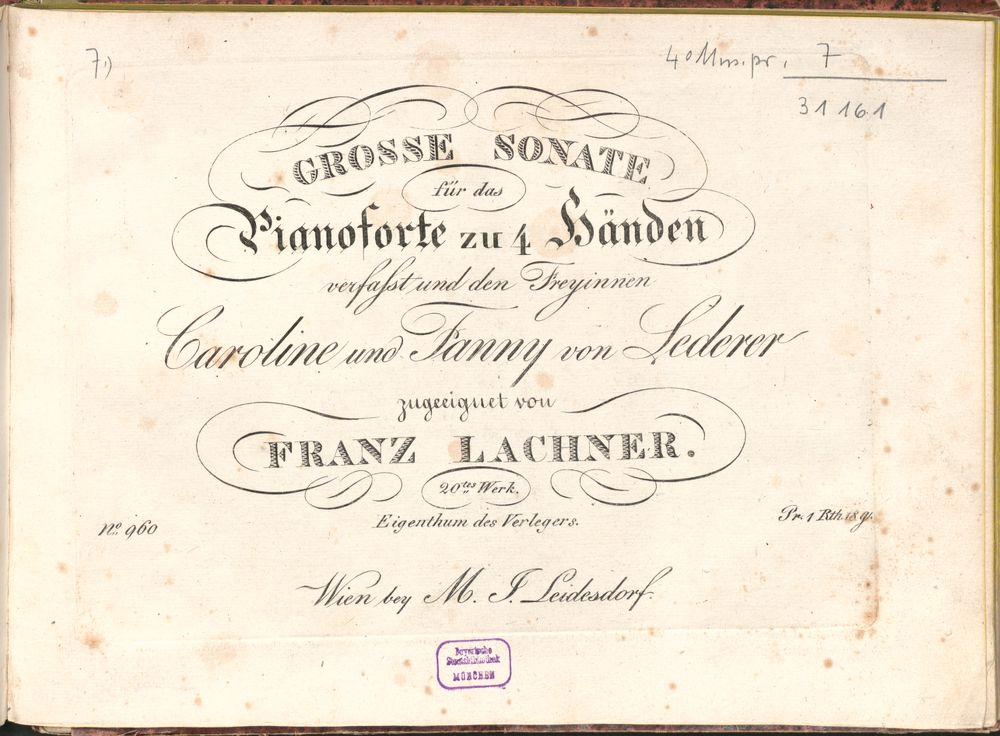 7.)
4° Mus. pr. 7
31161
GROSSE SONATE
für das
Pianoforte zu 4 Händen
verfasst und den Freyinnen
Caroline und Fanny von Lederer
zugeeignet von
FRANZ LACHNER.
20tes Werk.
Eigenthum des Verlegers.
No. 960
Pr. 1 Rth. 18 g.
Wien bey M. J. Leidesdorf.
Bayerische
Staatsbibliothek
MÜNCHEN